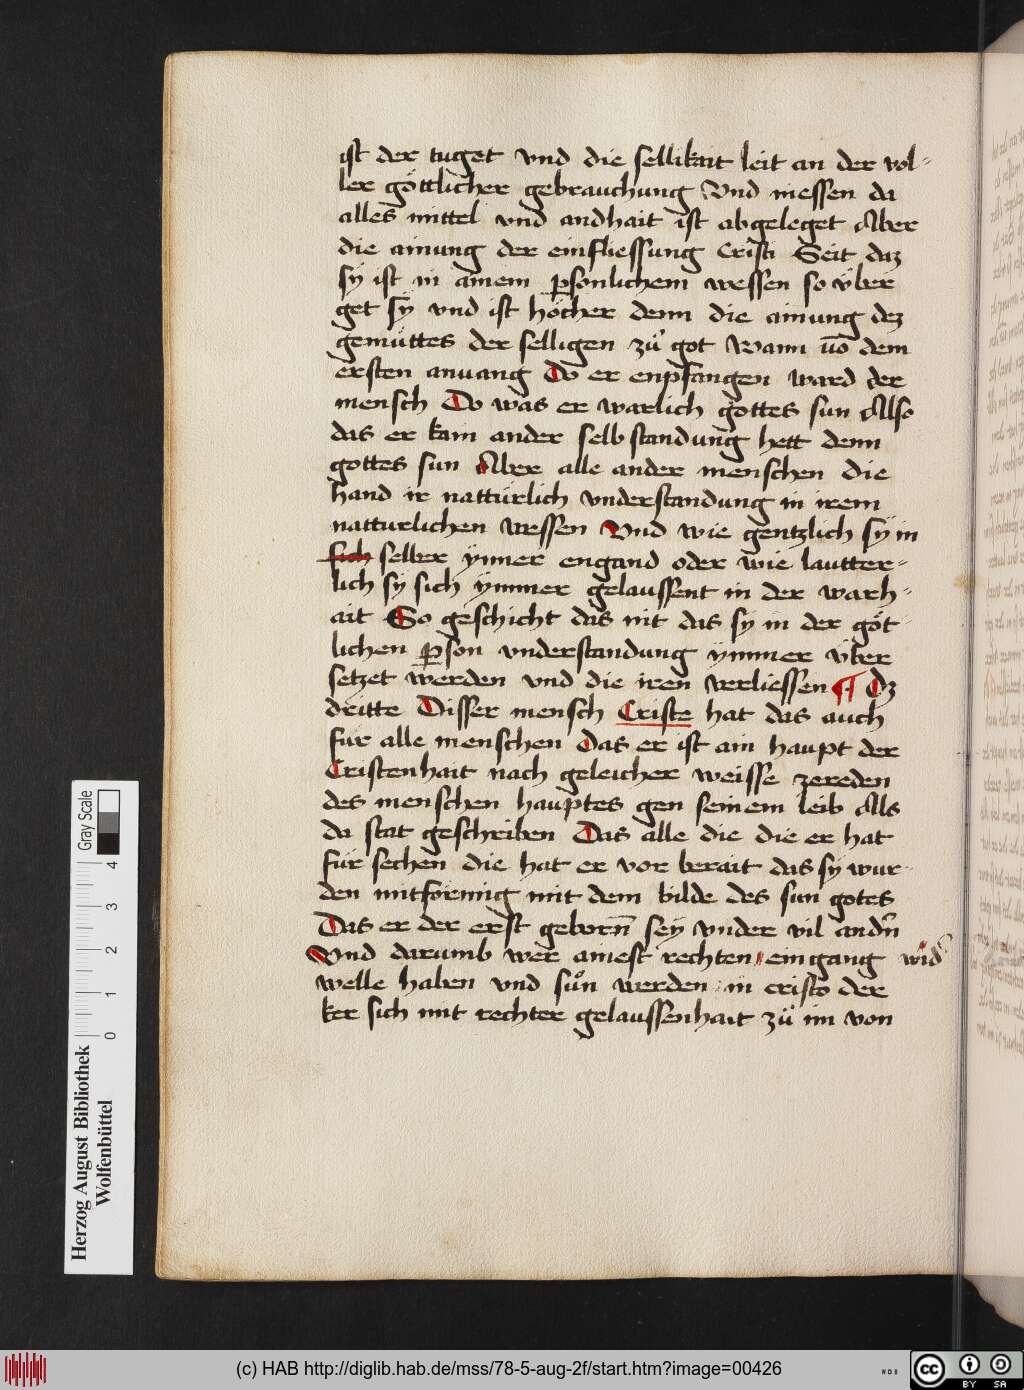 ist der tuget vnd die sellikait leit an der vol-
ler göttlicher gebrauchung Vnd niessen da
alles mittel vnd andhait ist abgeleget Aber
die ainung der einfliessung Cristi Seit daz
sÿ ist in ainem psönlichem wessen so v̈ber
get sÿ vnd ist höcher denn die ainung dez
gemüttes der selligen zů got Wann uō dem
ersten anuang Do er enpfangen ward der
mensch Do was er warlich gottes sun Also
das er kain ander selb standung hett denn
gottes sun Aber alle ander menschen die
hand ir nattürlich vnderstandung in irem
natturlichen wessen Vnd wie gentzlich sÿ in
sich selber ÿnner engand oder wie lautter-
lich sÿ sich ÿmmer gelaussent in der warh-
ait So geschicht das nit das sy in der göt
lichen pson vnderstandung ymmer v̈ber
setzet werden vnd die iren verliessen ¶ Dz
dritte Disser mensch Criste hat das auch
fur alle menschen Das er ist ain haupt der
Cristenhait nach geleicher weisse zereden
des menschen hauptes gen seinem leib Als
da stat geschriben Das alle die die er hat
fur sechen die hat er vor berait das sy wur
den mitförmig mit dem bilde des sun gotes
Das er der erst geborn̄ seÿ vnder vil andn̄
Vnd darumb wer ainest rechten eingang wid
welle haben vnd sůn werden in cristo der
ker sich mit rechter gelaussenhait zů im von
Gray Scale
0 1 2 3 4
Herzog August Bibliothek
Wolfenbüttel
(c) HAB http://diglib.hab.de/mss/78-5-aug-2f/start.htm?image=00426
WDB
cc BY SA